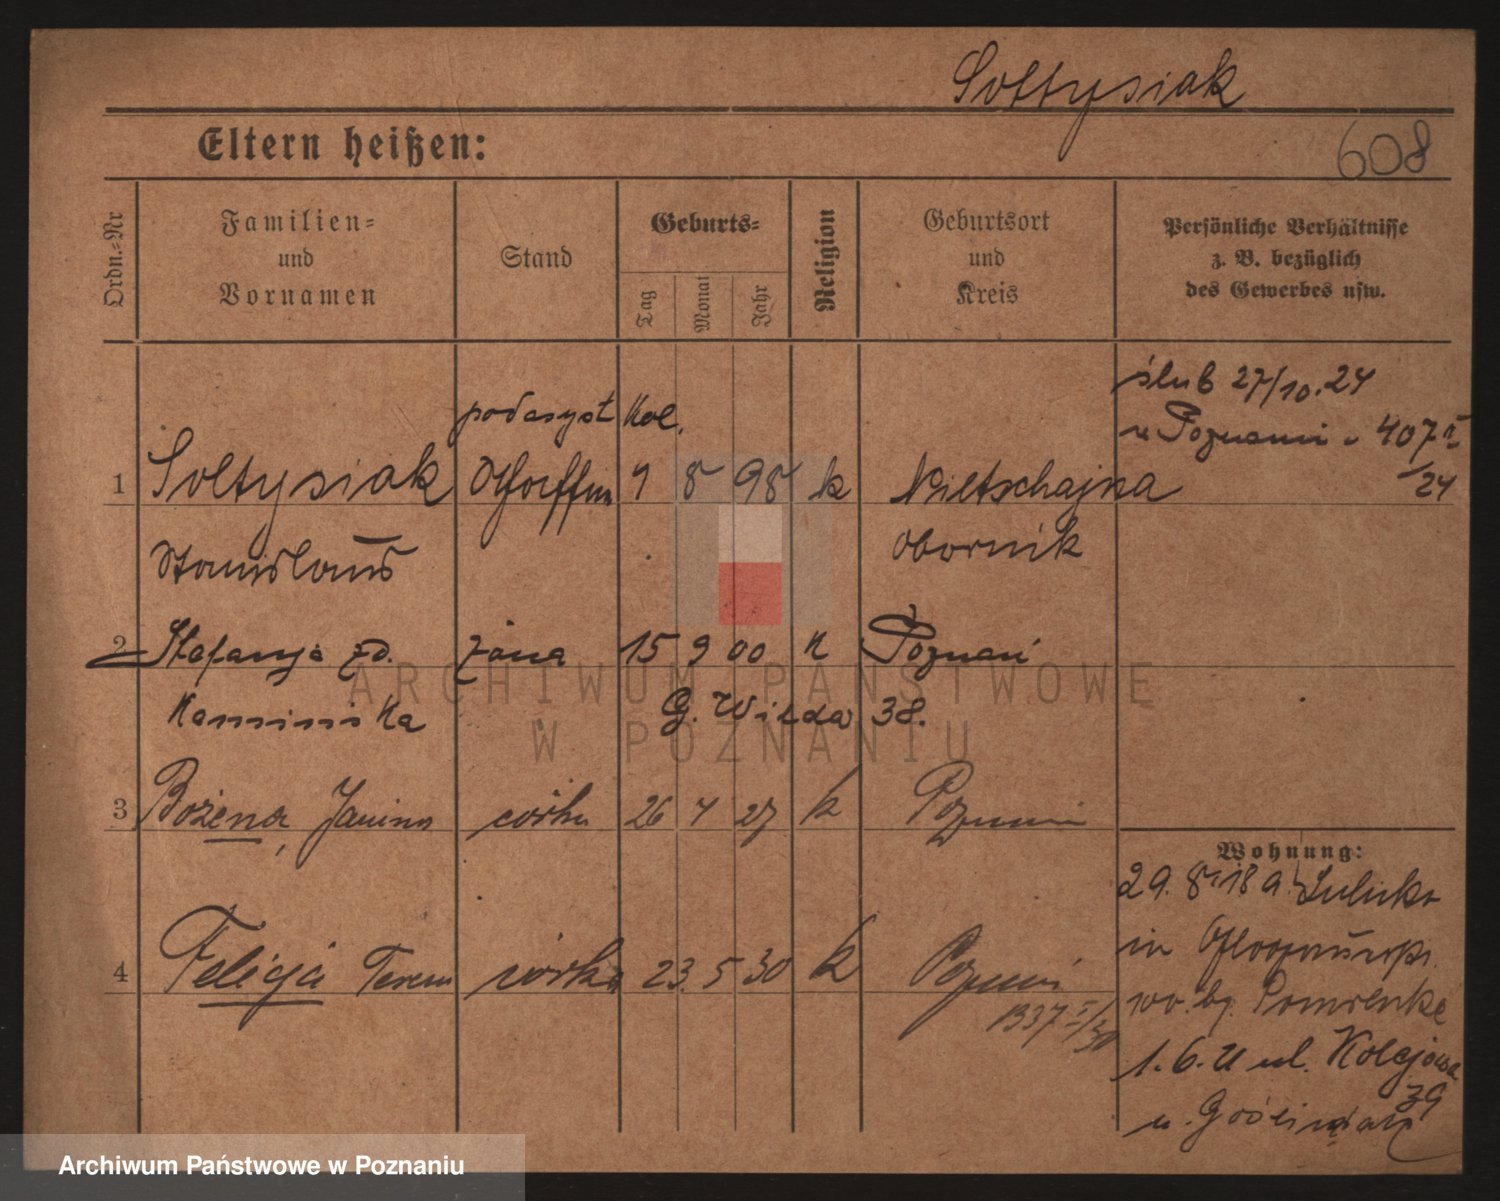 Sołtysiak
Eltern heißen:
608
Ordn.-Nr
Familien- und Vornamen
Stand
Geburts-
Tag
Monat
Jahr
Religion
Geburtsort und Kreis
Persönliche Verhältnisse z. B. bezüglich des Gewerbes usw.
ślub 27/10.24
w Poznaniu 407
/24
podasyst Kol.
1 Sołtysiak 9 8 98 k Nieltschajna
Stanislaus Obornik
2 Stefanja zd. żona 15 9 00 K Poznań
Kamińska G. Wilda 38.
3 Bożena, Janina córka 26 4 27 k Poznań
Wohnung:
29. 8. 18 a.
in
4 Felicja Teresa córka 23. 5 30 k Poznań
1337 I/30
bj. Pomrenke
1. 6. 21 ul. Kolejowa
39
u.
ARCHIWUM PAŃSTWOWE
W POZNANIU
Archiwum Państwowe w Poznaniu